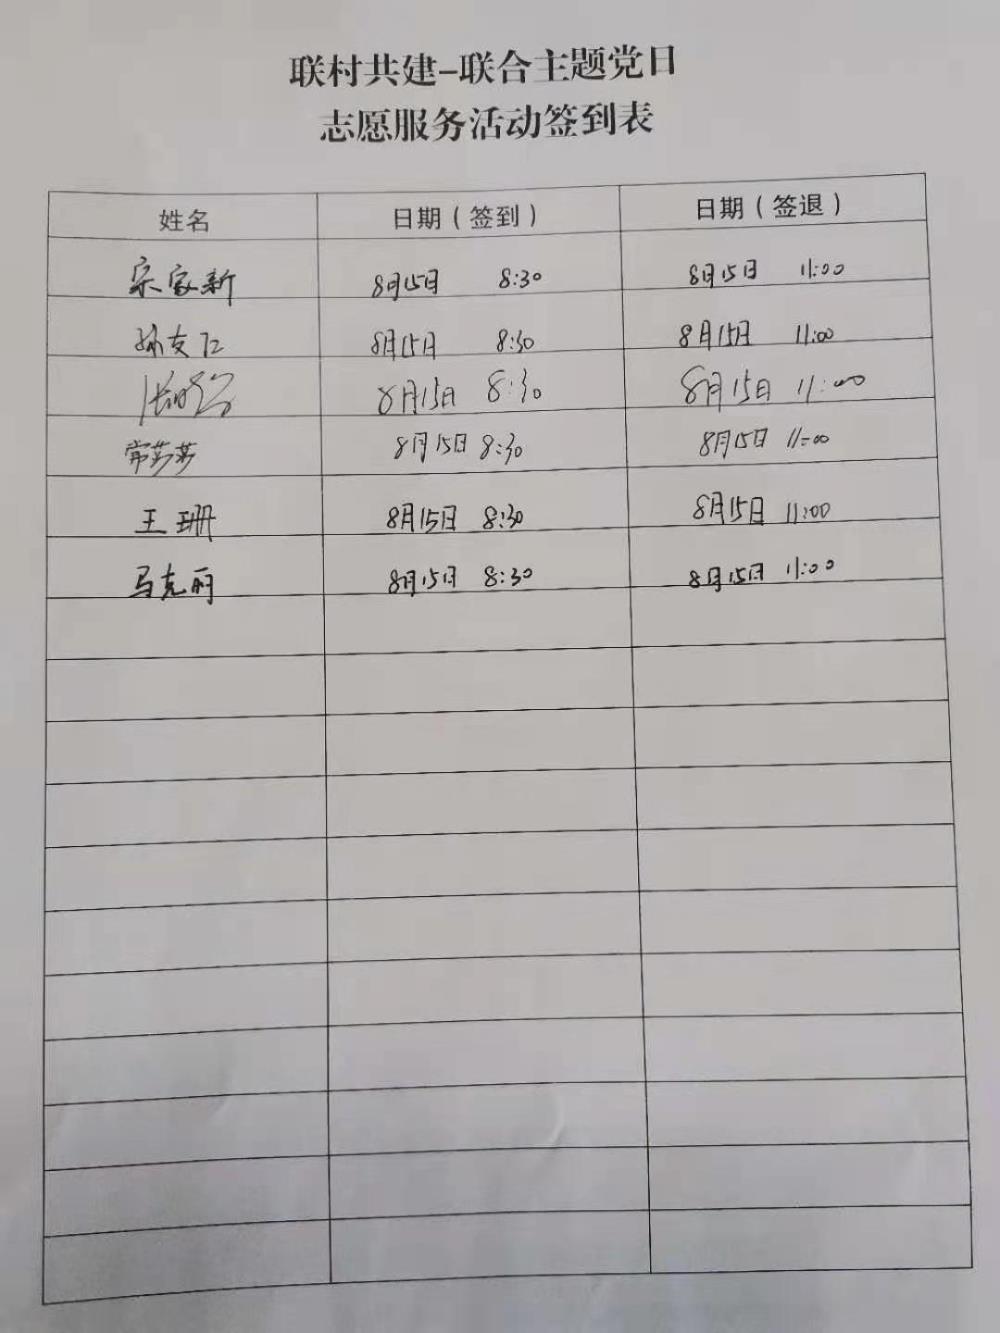 联村共建-联合主题党日
志愿服务活动签到表
姓名 日期（签到） 日期（签退）
宗家新 8月15日 8:30 8月15日 11:00
孙友仁 8月15日 8:30 8月15日 11:00
8月15日 8:30 8月15日 11:00
常莎莎 8月15日 8:30 8月15日 11:00
王珊 8月15日 8:30 8月15日 11:00
马克丽 8月15日 8:30 8月15日 11:00